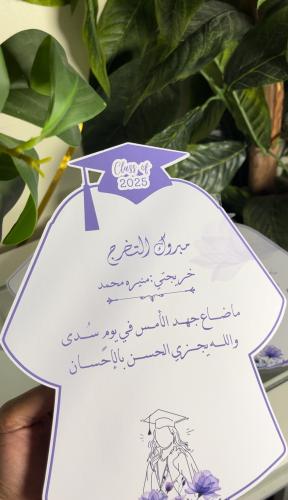 Class of
2025
مبروك التخرج
خريجتي : منيره محمد
ماضاع جهد الأمس في يوم سُدى
والله يجزي الحسن بالإحسان